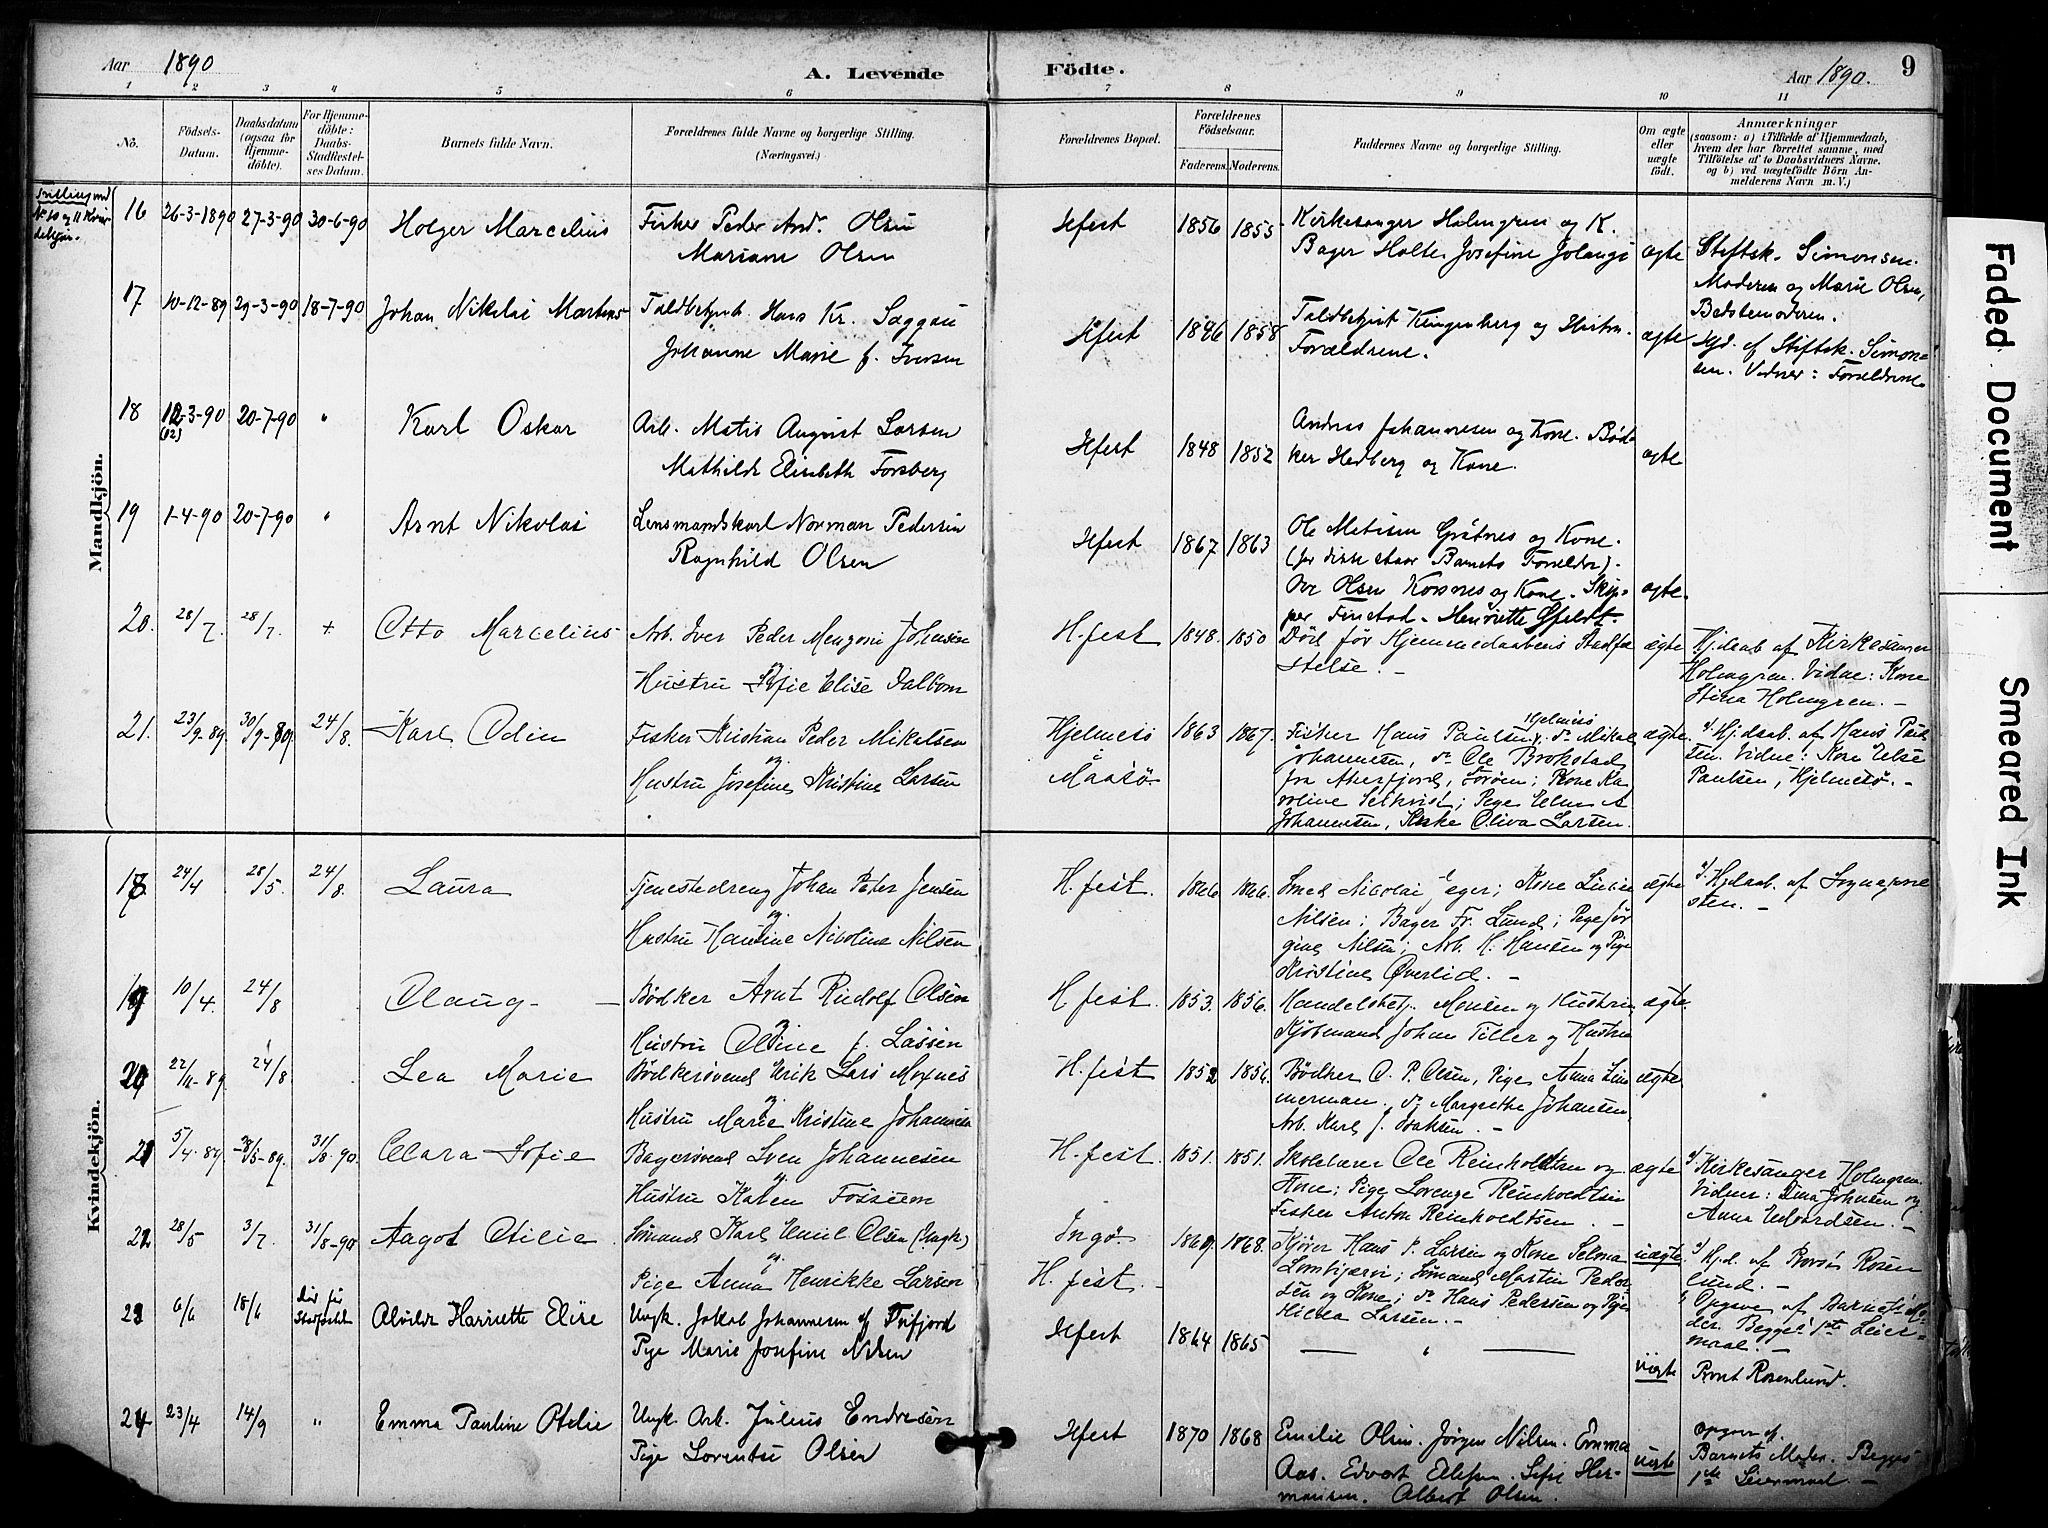 Aar 1890
A. Levende
Födte.
Aar 1890.
9
1 2 3 4 5 6 7 8 9 10 11
No.
Födsels-Datum.
Daabsdatum (ogsaa for Hjemme-döbte).
For Hjemme-döbte: Daabs-Stadfæstel-ses Datum.
Barnets fulde Navn.
Forældrenes fulde Navne og borgerlige Stilling.
(Næringsvei.)
Forældrenes Bopæl.
Forældrenes Födselsaar.
Faderens. Moderens.
Faddernes Navne og borgerlig Stilling.
Om ægte eller uægte födt.
Anmærkninger
(saasom: a) i Tilfælde af Hjemmedaab,
hvem der har forrettet samme, med
Tilföielse af to Daabsvidners Navne.
og b) ved uægtefödte Börn An-
melderens Navn m. V.)
Mandkjön.
Tvilling med
No 10 og 11 Kvin-
dekjøn.
16 26-3-1890 27-3-90 30-6-90 Holger Marcelius Fisker Peder And. Olsen
Mariane Olsen
Hfest 1856 1855 Kirkesanger Holmgren og K.
Bager Holte, Josefine
ægte Stiftsk. Simonsen.
Moderen og Marie Olsen,
Bedstemoderen.
17 10-12-89 29-3-90 18-7-90 Johan Nikolai Martens Toldbetjent Hans Kr. Saggau
Johanne Marie f. Iversen
Hfest 1846 1858 Toldbetjent Klingenberg og Hustru.
Forældrene.
ægte Hjd. af Stiftsk. Simon-
sen. Vidner: Forældrene
18 12-3-90 (12) 20-7-90 " Karl Oskar Arb. Matis August Larsen
Mathilde Elisabeth Forsberg
Hfest 1848 1852 Andreas Johannesen og Kone. Bød-
ker Hedberg og Kone.
ægte
19 1-4-90 20-7-90 " Arnt Nikolai Lensmandskarl Norman Pedersen
Ragnhild Olsen
Hfest 1867 1863 Ole Matisen Grøtnes og Kone.
(for disse staar Barnets Forældre).
Ove Olsen Korsnes og Kone. Skip-
per Finstad - Henriette
ægte.
20. 28/7 28/7. + Otto Marcelius Arb. Iver Peder Johansen
og
Hustru Sofie Elise Dalbom
H.fest 1848. 1850 Død før Hjemmedaabens Stadfæ
stelse. -
ægte Hjdaab af Kirkesanger
Holmgren. Vidne: Kone
Stina Holmgren. -
21. 23/9-89. 30/9-89. 24/8. Karl Odin Fisker Kristian Peder Mikalsen
og
Hustru Josefine Kristine Larsen
Hjelmesö
Maasö.
1863 1867. Fisker Hans Paulsen, Hjelmesö do Mikal
Johannesen, do Ole Brokstad
fra Akerfjord, Sörøen; Kone Ka-
roline; Pige Ellen A
Johannesen, Oliva Larsen.
ægte. a/ Hjdaab. af Hans Paul
sen. Vidne: Kone Else
Paulsen, Hjelmesö. -
Kvindekjön.
18 24/4 28/5. 24/8. Laura Tjenestedreng Johan Peter Jensen
og
Hustru Hansine Nicoline Nilsen
H.fest. 1866 1866. Smed Nicolai Jeger; Kone Lucie
Nilsen; Bager Fr. Lund; Pige Jör
gine Nilsen; Arb. H. Hansen og Pige
Kristine Øverlid. -
ægte a/ Hjdaab. af Sognepre
sten. -
19 10/4. 24/8 Olaug - Bødker Arnt Rudolf Olsen
og
Hustru Oline f. Lassen
H fest. 1853. 1856. Handelsbetj. Monsen og Hustru,
Kjöbmand Johan Tiller og Hustru
ægte.
20 22/11-89. 24/8 Lea Marie Bödkersvend Erik Lars Moxnes
og
Hustru Marie Kristine Johannesen
H.fest 1852 1856. Bødker O. P. Olsen, Pige Anna Zim
merman. do Margrethe Johansen,
Arb. Karl J. Isaksen. -
ægte
21 5/4-89. 28/5-89. 31/8-90. Clara Sofie Bagersvend Sven Johannesen
og
Hustru Karen Fossum
H.fest. 1851. 1851. Skolelærer Ole Reinholdtsen og
Kone; Pige Lorenze Reinholdtsen
Fisker Anton Reinholdtsen. -
ægte a/ Kirkesanger Holmgren.
Vidner: Dina Johnsen og
Anna Edvardsen. -
22 28/5 3/7 31/8-90 Aagot Otilie Sømand Karl Emil Olsen (Ungk.)
og
Pige Anna Henrikke Larsen
Ingö.
H. fest. -
1869. 1868. Kjører Hans P. Larsen og Kone Selma
; Sømand Martin Peder
sen og Kone; do Hans Pedersen og Pige
Hilda Larsen. -
uægte a/ Hj.d. af Provst Rosen
lund. -
b/ Opgave af Barnets Mo
der. Begges 1ste Leier-
maal. -
23 6/6 18/6 Død før Stadfæstel. Alvilde Harriette Elise Ungk. Jakob Johannesen af Fufjord
Pige Marie Josefine Nilsen
Hfest 1864 1865 — " —
uægte Provst Rosenlund.
24 23/4 14/9 " Emma Pauline Otelie Ungk. Arb. Julius Endresen
Pige Lorentse Olsen
Hfest 1870 1868 Emelie Olsen. Jørgen Nilsen. Emma
Aas. Edvart Ellefsen. Sofie Her-
mansen. Albert Olsen.
uægte Opgave af
Barnets Moder. Begges
1ste Leiermaal -
Faded Document
Smeared Ink